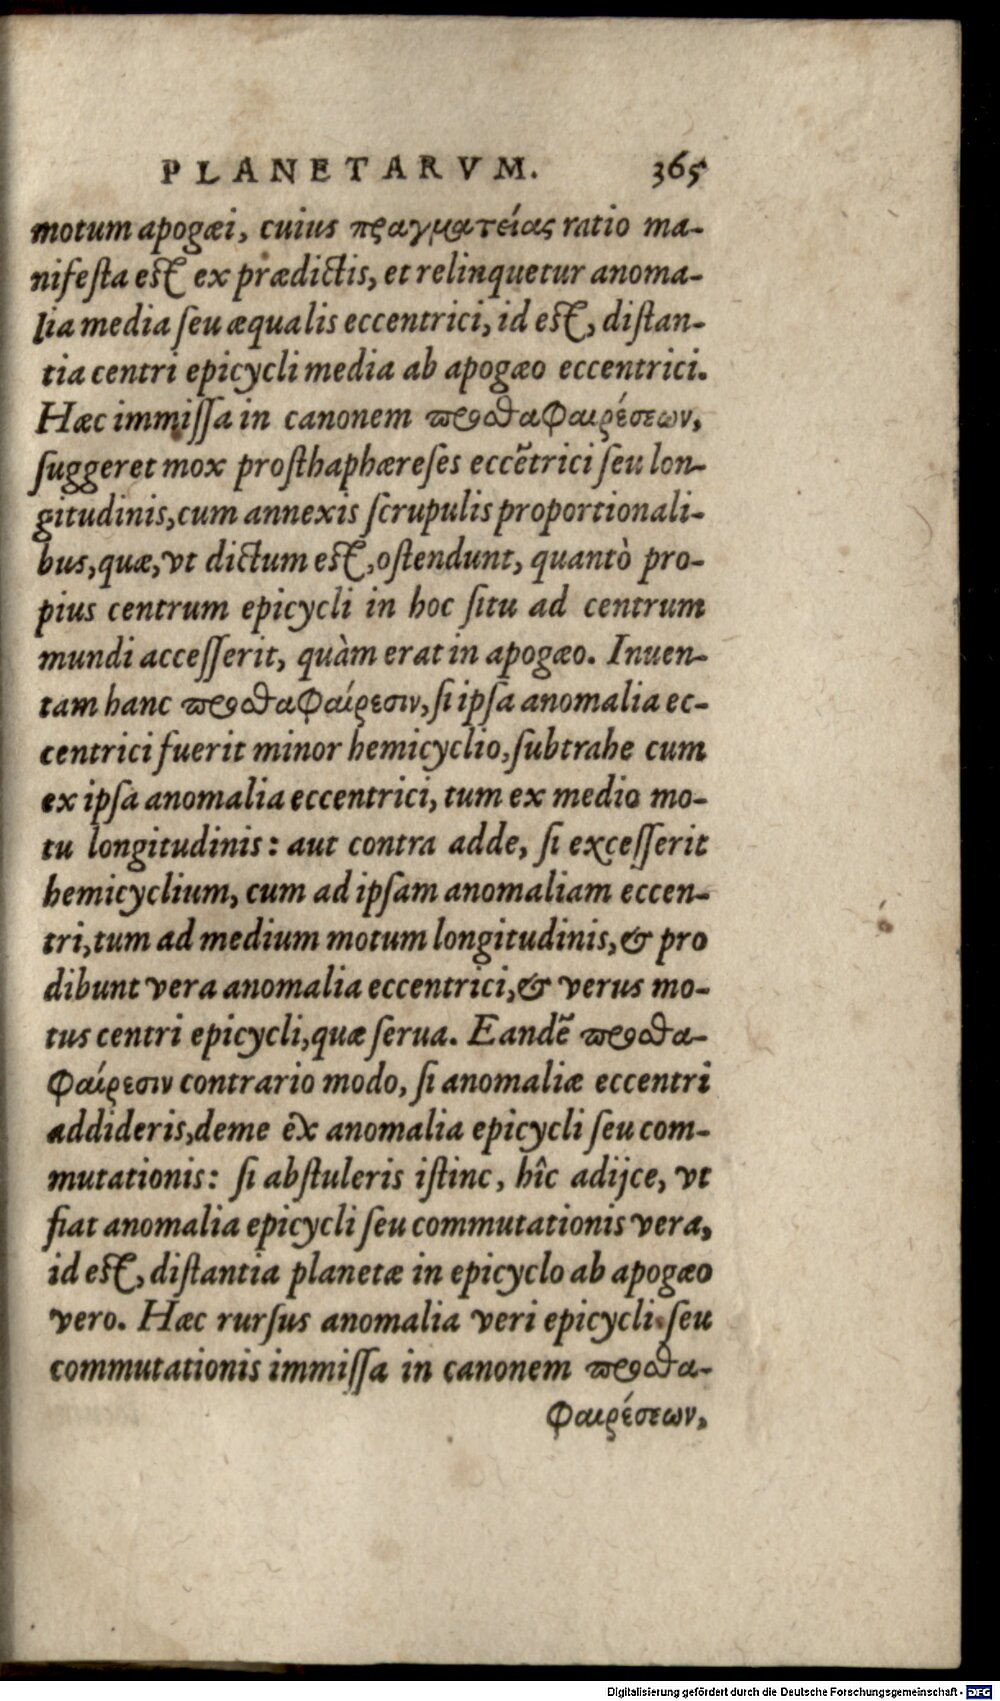 PLANETARVM. 365
motum apogæi, cuius πραγματείας ratio ma-
nifesta est ex prædictis, et relinquetur anoma-
lia media seu æqualis eccentrici, id est, distan-
tia centri epicycli media ab apogæo eccentrici.
Hæc immissa in canonem προσθαφαιρέσεων,
suggeret mox prosthaphæreses eccẽtrici seu lon-
gitudinis, cum annexis scrupulis proportionali-
bus, quæ, vt dictum est, ostendunt, quantò pro-
pius centrum epicycli in hoc situ ad centrum
mundi accesserit, quàm erat in apogæo. Inuen-
tam hanc προσθαφαίρεσιν, si ipsa anomalia ec-
centrici fuerit minor hemicyclio, subtrahe cum
ex ipsa anomalia eccentrici, tum ex medio mo-
tu longitudinis: aut contra adde, si excesserit
hemicyclium, cum ad ipsam anomaliam eccen-
tri, tum ad medium motum longitudinis, & pro
dibunt vera anomalia eccentrici, & verus mo-
tus centri epicycli, quæ serua. Eandẽ προσθα-
φαίρεσιν contrario modo, si anomaliæ eccentri
addideris, deme ex anomalia epicycli seu com-
mutationis: si abstuleris istinc, hîc adijce, vt
fiat anomalia epicycli seu commutationis vera,
id est, distantia planetæ in epicyclo ab apogæo
vero. Hæc rursus anomalia veri epicycli seu
commutationis immissa in canonem προσθα-
φαιρέσεων,
Digitalisierung gefördert durch die Deutsche Forschungsgemeinschaft - DFG